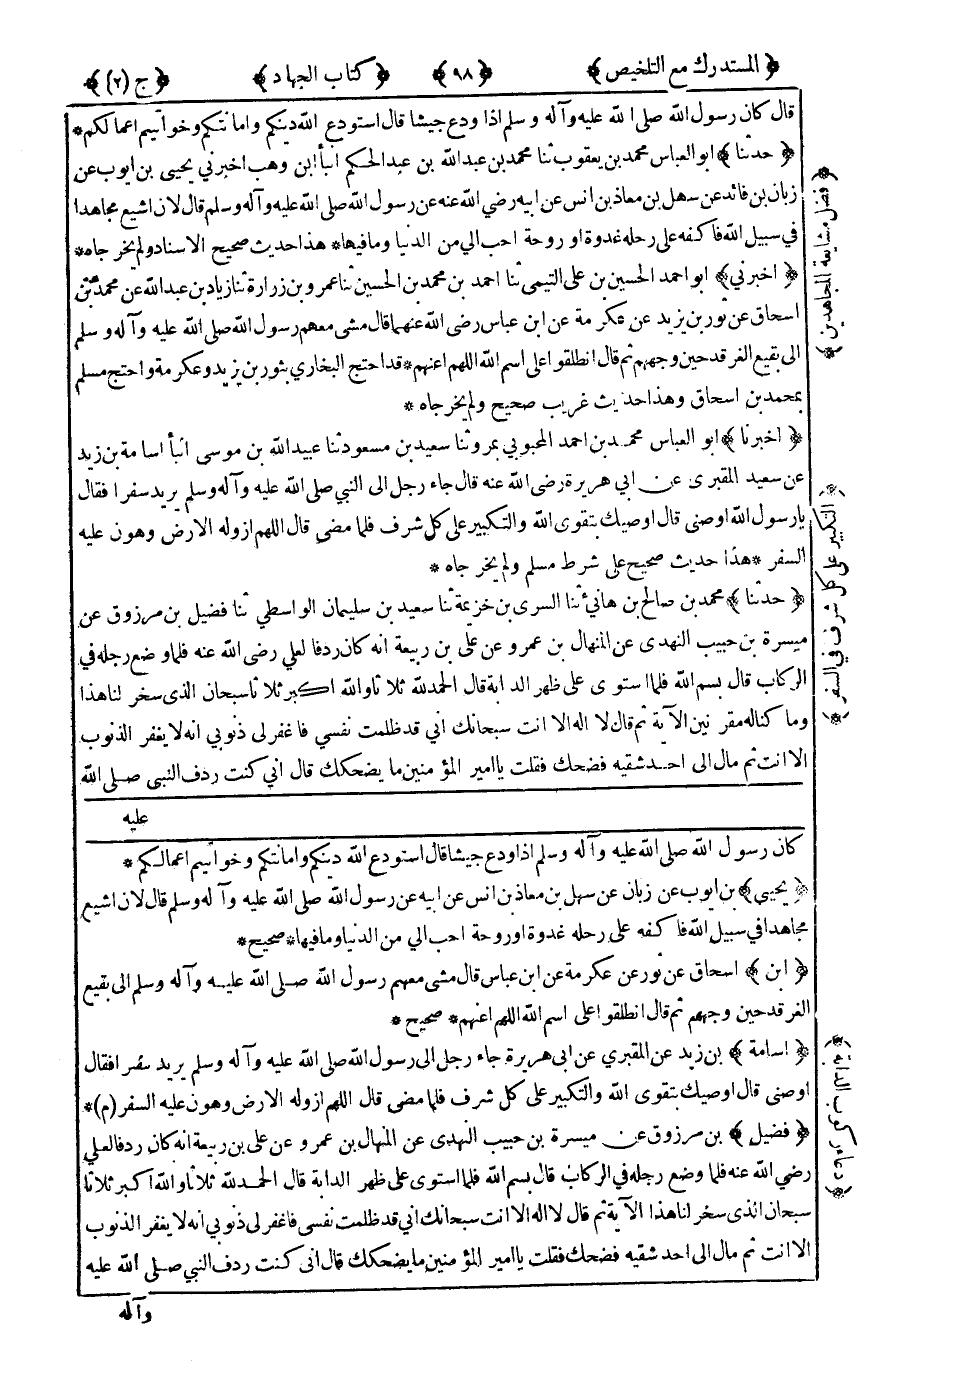 ﴿ المستدرك مع التلخيص ﴾ ﴿ ٩٨ ﴾ ﴿ كتاب الجهاد ﴾ ﴿ ج (٢) ﴾
قال كان رسول الله صلى الله عليه وآله وسلم اذا ودع جيشا قال استودع الله دينكم وامانتكم وخواتيم اعمالكم *
﴿ حدثنا ﴾ ابو العباس محمد بن يعقوب ثنا محمد بن عبد الله بن عبد الحكم انبأ ابن وهب اخبرني يحيى بن ايوب عن
زبان بن فائد عن سهل بن معاذ بن انس عن ابيه رضي الله عنه عن رسول الله صلى الله عليه وآله وسلم قال لان اشيع مجاهدا
في سبيل الله فاكفه على رحله غدوة او روحة احب الي من الدنيا وما فيها * هذا حديث صحيح الاسناد ولم يخرجاه *
﴿ اخبرني ﴾ ابو احمد الحسين بن على التيمى ثنا احمد بن محمد بن الحسين ثنا عمرو بن زرارة ثنا زياد بن عبد الله عن محمد بن
اسحاق عن ثور بن يزيد عن عكرمة عن ابن عباس رضى الله عنهما قال مشى معهم رسول الله صلى الله عليه وآله وسلم
الى بقيع الغرقد حين وجههم ثم قال انطلقوا على اسم الله اللهم اعنهم * قد احتج البخاري بثور بن يزيد وعكرمة واحتج مسلم
بمحمد بن اسحاق وهذا حديث غريب صحيح ولم يخرجاه *
﴿ اخبرنا ﴾ ابو العباس محمد بن احمد المحبوبي بمرو ثنا سعيد بن مسعود ثنا عبيد الله بن موسى انبأ اسامة بن زيد
عن سعيد المقبرى عن ابي هريرة رضى الله عنه قال جاء رجل الى النبي صلى الله عليه وآله وسلم يريد سفرا فقال
يا رسول الله اوصنى قال اوصيك بتقوى الله والتكبير على كل شرف فلما مضى قال اللهم ازو له الارض وهون عليه
السفر * هذا حديث صحيح على شرط مسلم ولم يخرجاه *
﴿ حدثنا ﴾ محمد بن صالح بن هانئ ثنا السرى بن خزيمة ثنا سعيد بن سليمان الواسطي ثنا فضيل بن مرزوق عن
ميسرة بن حبيب النهدى عن المنهال بن عمرو عن على بن ربيعة انه كان ردفا لعلي رضى الله عنه فلما وضع رجله في
الركاب قال بسم الله فلما استوى على ظهر الدابة قال الحمد لله ثلاثا والله اكبر ثلاثا سبحان الذى سخر لنا هذا
وما كنا له مقرنين الآية ثم قال لا اله الا انت سبحانك انى قد ظلمت نفسي فاغفر لى ذنوبي انه لا يغفر الذنوب
الا انت ثم مال الى احد شقيه فضحك فقلت يا امير المؤمنين ما يضحكك قال انى كنت ردف النبى صلى الله
عليه
﴿ فضل مشايعة المجاهدين ﴾
﴿ التكبير على كل شرف في السفر ﴾
كان رسول الله صلى الله عليه وآله وسلم اذا ودع جيشا قال استودع الله دينكم وامانتكم وخواتيم اعمالكم *
﴿ يحيى ﴾ بن ايوب عن زبان عن سهل بن معاذ بن انس عن ابيه عن رسول الله صلى الله عليه وآله وسلم قال لان اشيع
مجاهدا في سبيل الله فاكفه على رحله غدوة او روحة احب الي من الدنيا وما فيها * صحيح *
﴿ ابن ﴾ اسحاق عن ثور عن عكرمة عن ابن عباس قال مشى معهم رسول الله صلى الله عليه وآله وسلم الى بقيع
الغرقد حين وجههم ثم قال انطلقوا على اسم الله اللهم اعنهم * صحيح *
﴿ اسامة ﴾ بن زيد عن المقبري عن ابى هريرة جاء رجل الى رسول الله صلى الله عليه وآله وسلم يريد سفرا فقال
اوصنى قال اوصيك بتقوى الله والتكبير على كل شرف فلما مضى قال اللهم ازو له الارض وهون عليه السفر (م) *
﴿ فضيل ﴾ بن مرزوق عن ميسرة بن حبيب النهدى عن المنهال بن عمرو عن على بن ربيعة انه كان ردفا لعلي
رضي الله عنه فلما وضع رجله في الركاب قال بسم الله فلما استوى على ظهر الدابة قال الحمد لله ثلاثا والله اكبر ثلاثا
سبحان الذى سخر لنا هذا الآية ثم قال لا اله الا انت سبحانك انى قد ظلمت نفسى فاغفر لى ذنوبي انه لا يغفر الذنوب
الا انت ثم مال الى احد شقيه فضحك فقلت يا امير المؤمنين ما يضحكك قال انى كنت ردف النبي صلى الله عليه
وآله
﴿ دعاء ركوب الدابة ﴾